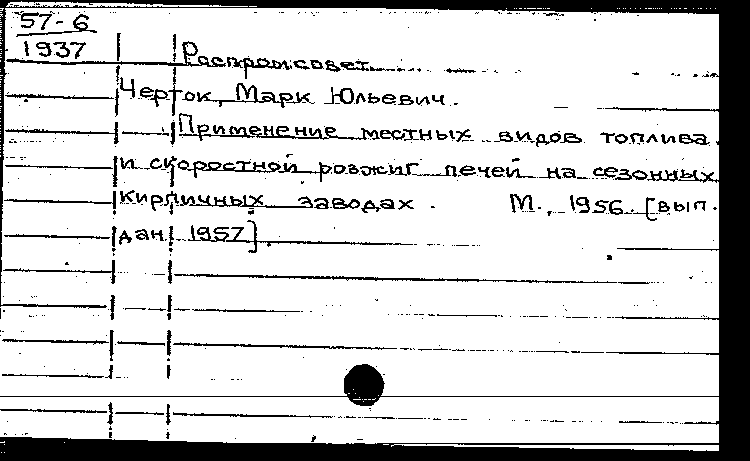 57-6
1937
Распромсовет
Черток, Марк Юльевич.
Применение местных видов топлива
и скоростной розжиг печей на сезонных
кирпичных заводах. М., 1956 [вып.
дан. 1957].